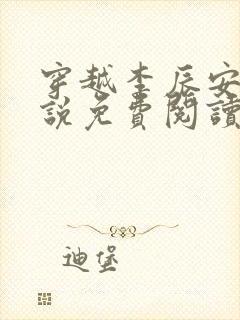 穿越李辰安
說免費閱讀
迪堡